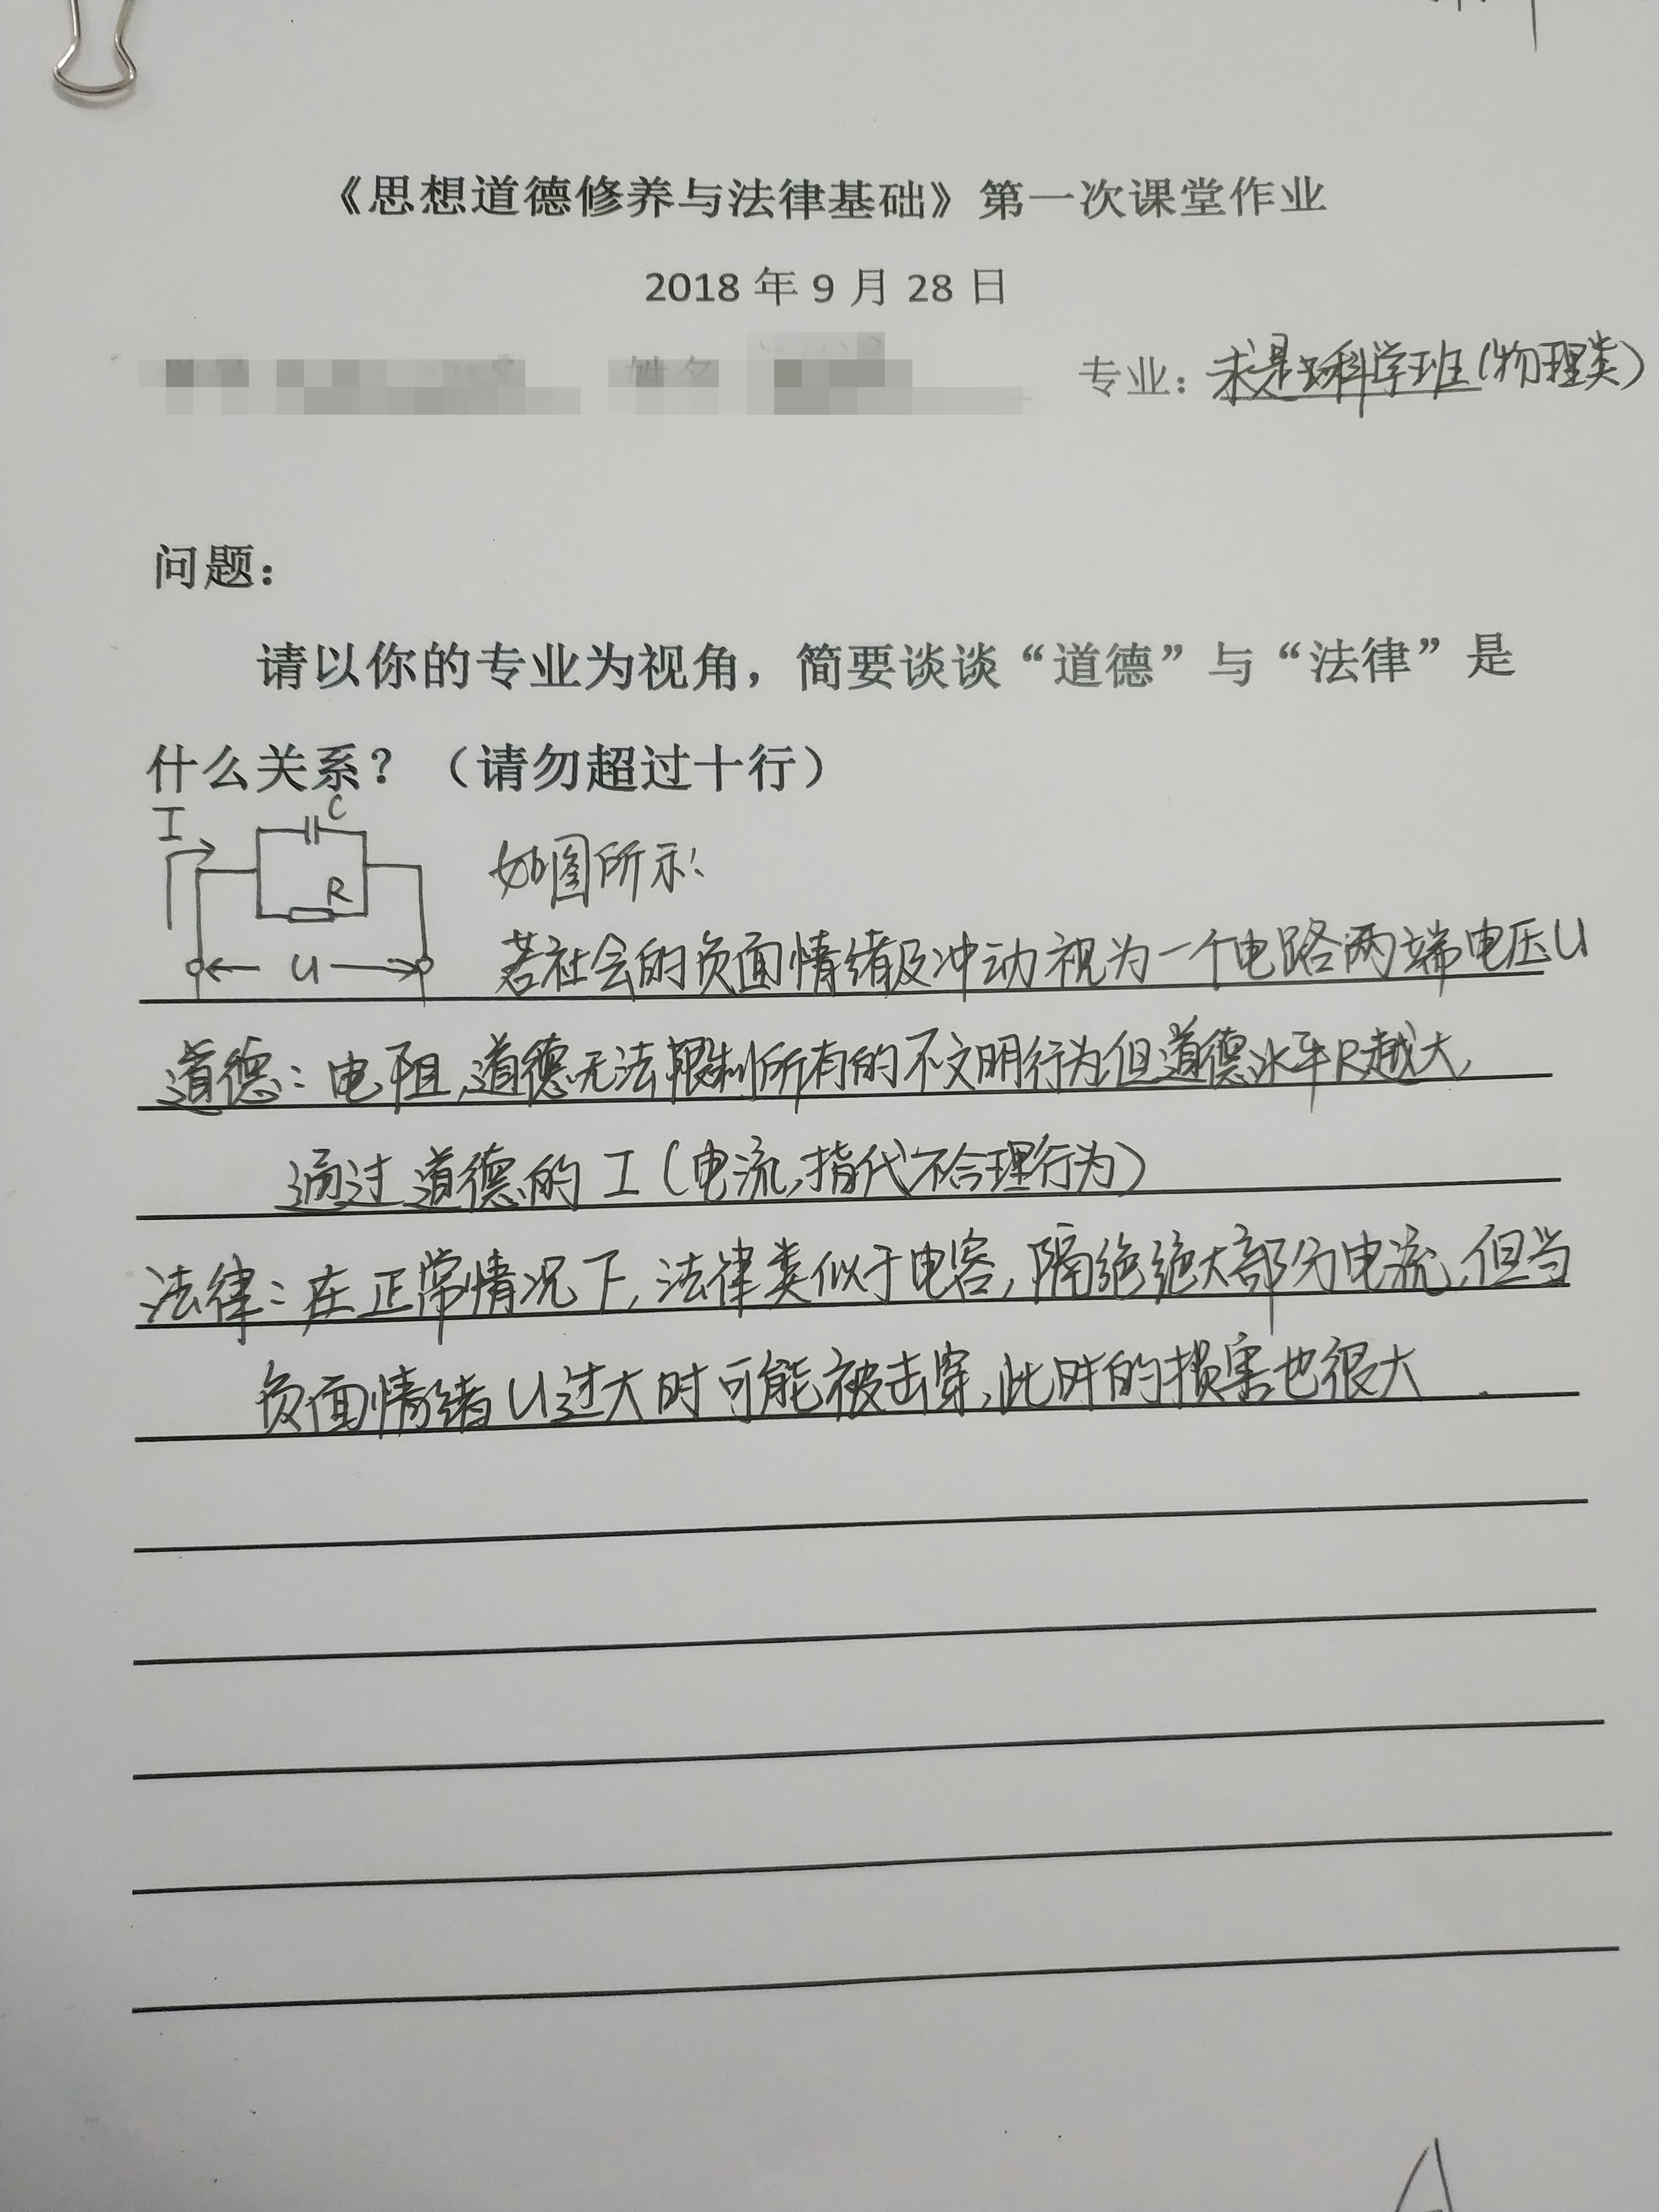 《思想道德修养与法律基础》第一次课堂作业
2018年9月28日
姓名 专业：求是科学班（物理类）
问题：
请以你的专业为视角，简要谈谈“道德”与“法律”是
什么关系？（请勿超过十行）
I C
R
U
如图所示：
若社会的负面情绪及冲动视为一个电路两端电压U
道德：电阻，道德无法限制所有的不文明行为，但道德水平R越大，
通过道德的I（电流，指代不合理行为）
法律：在正常情况下，法律类似于电容，隔绝绝大部分电流，但当
负面情绪U过大时可能被击穿，此时的损害也很大